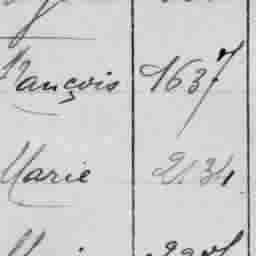 François 1637
Marie 2134